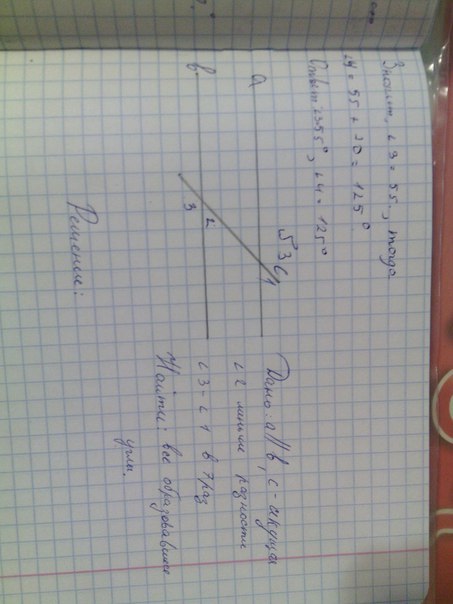 Значит, ∠3 = 55, тогда
∠4 = 55 + 70 = 125°
Ответ: ∠3 55°, ∠4 = 125°
а
в
1
2
3
Дано: a || b, c - секущая
∠2 меньше разности
∠3 - ∠1 в 7 раз
Найти: все образовавшиеся
углы.
Решение: